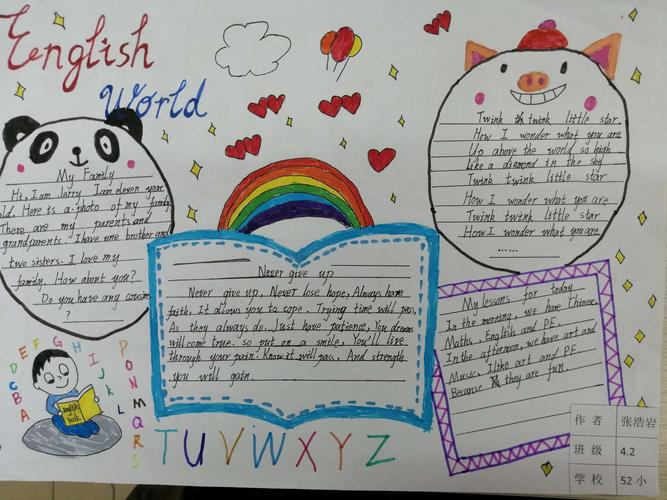 English
World
My Family
Hi, I am Jerry. I am eleven year
old. Here is a photo of my family
There are my parents and
grandparents. I have one brother and
two sisters. I love my
family. How about you?
Do you have any cousins
?
Never give up
Never give up, Never lose hope, Always have
faith. It allows you to cope. Trying time will pass,
As they always do. Just have patience, You dreams
will come true. so put on a smile, You'll live
through your pain. Know it will pass, And strength
you will gain.
Twink twink little star.
How I wonder what you are
Up above the world so high
Like a diamond in the sky
Twink twink little star
How I wonder what you are
Twink twink little star
How I wonder what you are.
……
My lessons for today
In the morning, we have Chinese,
Maths, English and PE.
In the afternoon, we have art and
Music. I like art and PE.
Because they are fun.
A B C D E F G H I J K L
P O N M Q R S
English book
T U V W X Y Z
作 者 张浩岩
班 级 4.2
学 校 52小